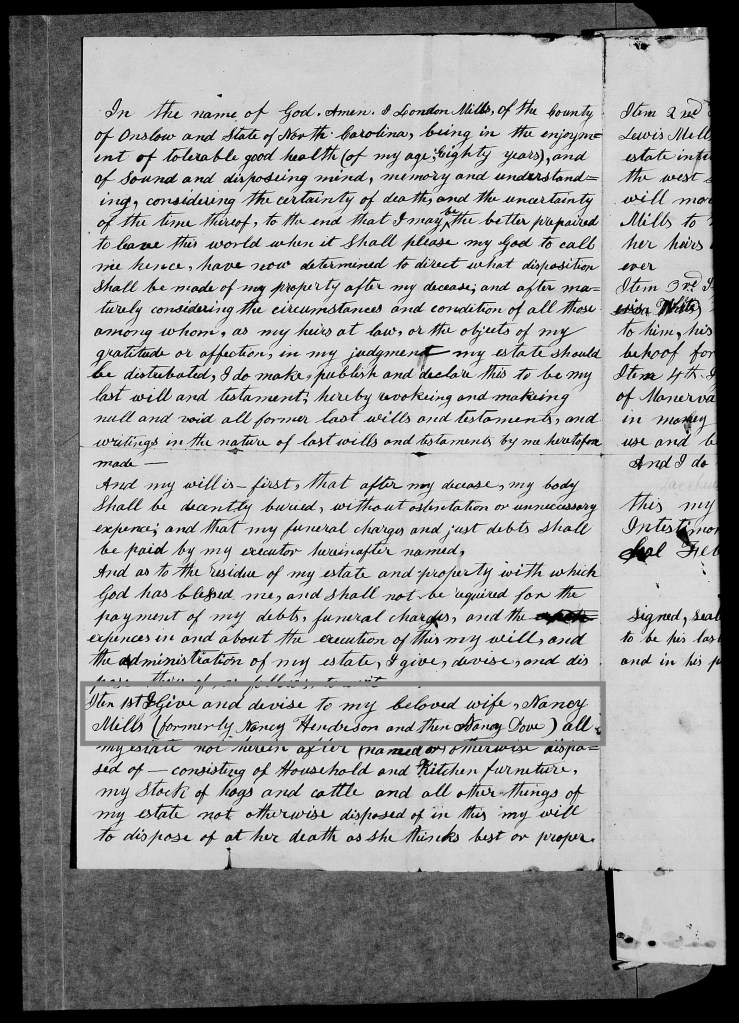 In the name of God. Amen. I London Mills, of the County
of Onslow and State of North Carolina, being in the enjoym=
ent of tolerable good health (of my age, Eighty years), and
of sound and disposeing mind, memory and understand=
ing, considering the certainty of death, and the uncertainty
of the time thereof, to the end that I may be the better prepared
to leave this world when it shall please my God to call
me hence, have now determined to direct what disposition
shall be made of my property after my decease; and after ma=
turely considering the circumstances and condition of all those
among whom, as my heirs at law, or the objects of my
gratitude or affection, in my judgment my estate should
be disturbated, I do make, publish and declare this to be my
last will and testament; hereby revokeing and makeing
null and void all former last wills and testaments, and
writings in the nature of last wills and testaments by me heretofore
made —
And my will is – first, that after my decease, my body
shall be decently buried, without ostentation or unnecessary
expence; and that my funeral charges and just debts shall
be paid by my executor hereinafter named,
And as to the residue of my estate and property with which
God has blessed me, and shall not be required for the
payment of my debts, funeral charges, and the
expences in and about the execution of this my will, and
the administration of my estate, I give, devise, and dis
Item 1st I Give and devise to my beloved wife, Nancy
Mills (formerly Nancy Henderson and then Nancy Dove) all
my estate not herein after (named or) otherwise dispo=
sed of — consisting of Household and Kitchen furneture,
my stock of hogs and cattle and all other things of
my estate not otherwise disposed of in this my will
to dispose of at her death as she thinks best or proper.
Item 2nd
Lewis Mill
estate in
the west
will mo
Mills to
her heirs
ever
Item 3rd
White
to him, his
behoof for
Item 4th
of Manerva
in money
use and b
And I do
this my
Intestimon
Feb
Signed, seal
to be his las
and in his p